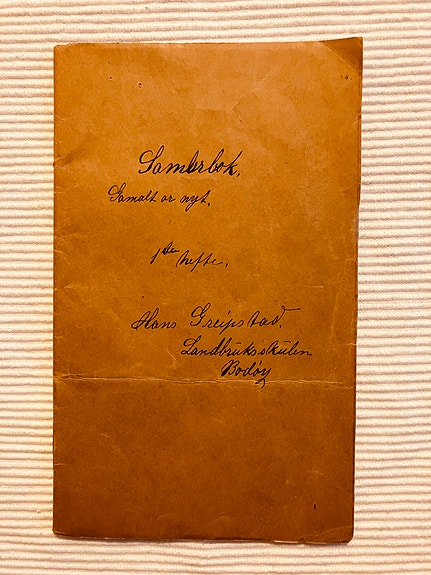 Samlarbok,
Gamalt or nytt.
1ste hefte.
Hans Greipstad.
Landbruksskulen
Bodøy